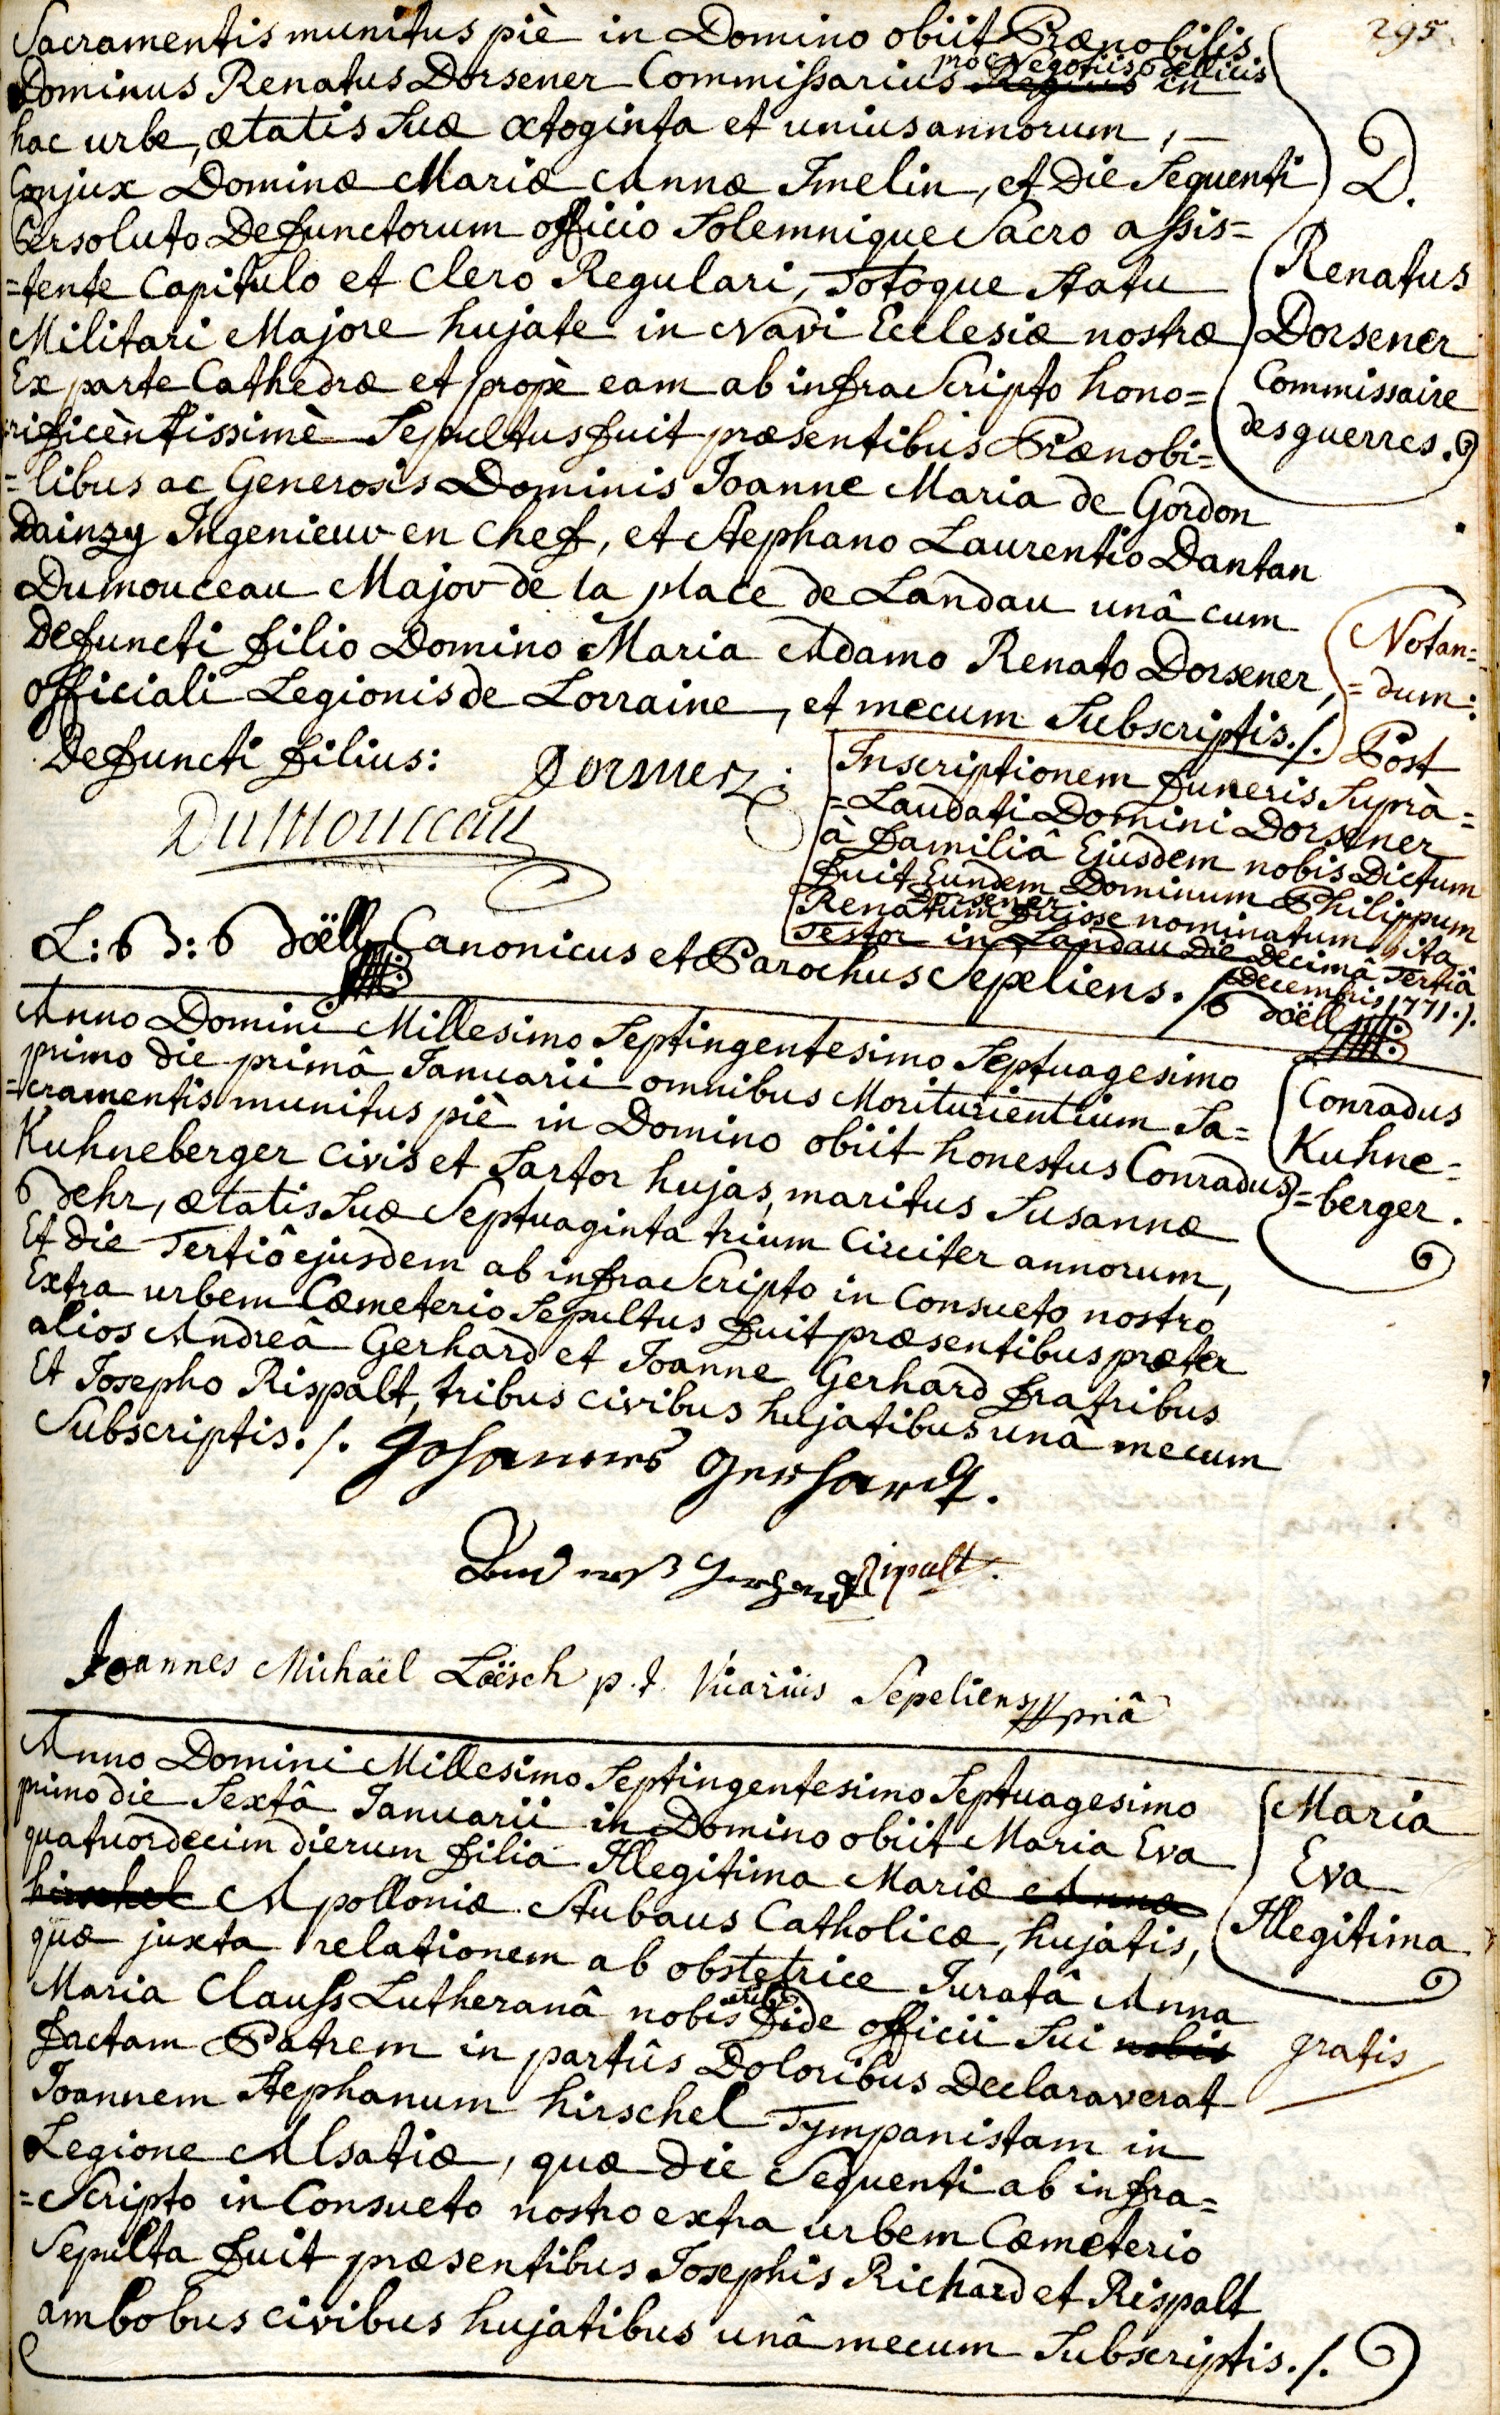 295.
Sacramentis munitus piè in Domino obiit Prænobilis
pro Negotiis bellicis
Dominus Renatus Dorsener Commissarius Regius in
hac urbe, ætatis suæ octoginta et unius annorum,
Conjux Dominæ Mariæ Annæ Imelin, et die sequenti
Persoluto Defunctorum officio Solemnique Sacro assis=
=tente Capitulo et Clero Regulari, Totoque statu
Militari Majore hujate in Navi Ecclesiæ nostræ
Ex parte Cathedræ et propè eam ab infra Scripto hono=
rificèntissimè Sepultus fuit præsentibus Prænobi=
=libus ac Generosis Dominis Joanne Maria de Gordon
Dainzy Ingenieur en chef, et Stephano Laurentio Dantan
Dumouceau Major de la place de Landau unâ cum
Defuncti filio Domino Maria Adamo Renato Dorsener,
officiali Legionis de Lorraine, et mecum Subscriptis./.
D.
Renatus
Dorsener
Commissaire
des guerres.
Defuncti filius: Dorsner
Dumouceau
Notan=
=dum:
Post
Inscriptionem funeris Suprà=
=Laudati Domini Dorsener
à familiâ Ejusdem nobis Dictum
fuit Eundem Dominum Philippum
Dorsener
Renatum fuisse nominatum, ita
Testor in Landau die decimâ Tertiâ
Decembris 1771./.
doëll
L: B: doëll Canonicus et Parochus Sepeliens./.
Anno Domini Millesimo Septingentesimo Septuagesimo
primo die primâ Januarii omnibus Moriturientium Sa=
=cramentis munitus piè in Domino obiit honestus Conradus
Kuhneberger civis et Sartor hujas, maritus Susannæ
dehr, ætatis Suæ Septuaginta trium circiter annorum,
Et die Tertiâ ejusdem ab infra Scripto in Consueto nostro
Extra urbem Cœmeterio Sepultus fuit præsentibus præter
alios Andreâ Gerhard et Joanne Gerhard fratribus
Et Josepho Rispalt, tribus civibus hujatibus unâ mecum
Subscriptis./.
Conradus
Kuhne=
=berger.
Johannes Gerhardt.
Gerhard Ripalt.
Joannes Michaël Loësch p.t. Vicarius Sepeliens priâ
Anno Domini Millesimo Septingentesimo Septuagesimo
primo die Sextâ Januarii in Domino obiit Maria Eva
quatuordecim dierum filia Illegitima Mariæ Annæ
hirschel Apolloniæ Stubaus Catholicæ, hujatis,
quæ juxta relationem ab obstetrice Juratâ Anna
Maria Clauss Lutheranâ nobis fide officii Sui nobis
factam Patrem in partûs Doloribus Declaraverat
Joannem Stephanum hirschel Tympanistam in
Legione Alsatiæ, quæ die Sequenti ab infra=
=Scripto in Consueto nostro extra urbem Cœmeterio
Sepulta fuit præsentibus Josephis Richard et Rispalt
ambobus civibus hujatibus unâ mecum Subscriptis./.
Maria
Eva
Illegitima
gratis